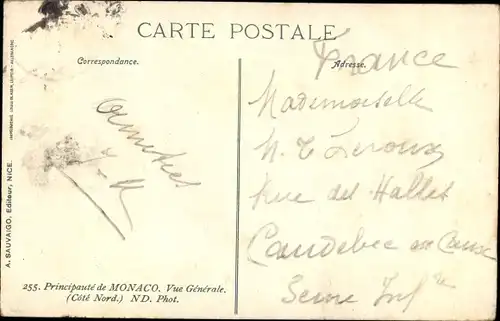 CARTE POSTALE
Correspondance.
Adresse.
France
Mademoiselle
Leroux
Rue des Halles
Caudebec en Caux
Seine Infre
Amitiés
A. SAUVAIGO, Editeur, NICE.
255. Principauté de MONACO. Vue Générale.
(Côté Nord.) ND. Phot.